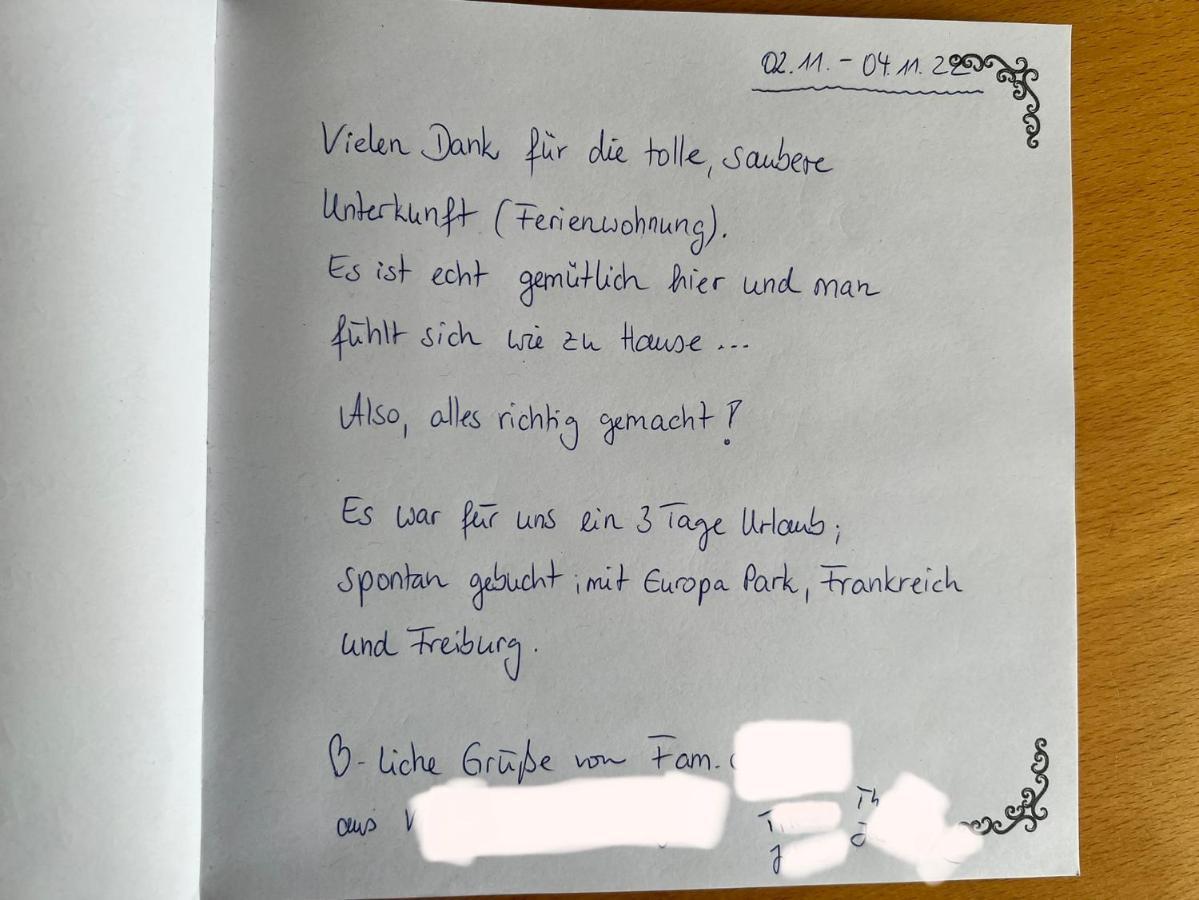 02.11. - 04.11.22
Vielen Dank für die tolle, saubere
Unterkunft (Ferienwohnung).
Es ist echt gemütlich hier und man
fühlt sich wie zu Hause ...
Also, alles richtig gemacht!
Es war für uns ein 3 Tage Urlaub;
spontan gebucht; mit Europa Park, Frankreich
und Freiburg.
♡-liche Grüße von Fam.
aus